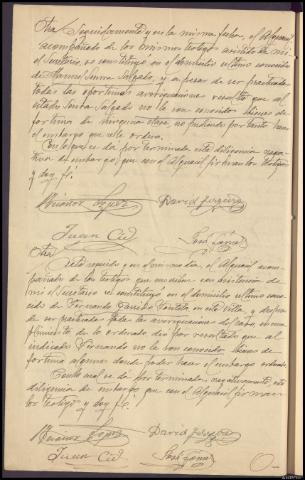 Otra. Seguidamente y en la misma fecha, el Alguacil
acompañado de los mismos testigos asistido de mi
el Secretario, se constituyó en el domicilio ultimo conocido
de Manuel Senra Salgado, y a pesar de ser practicadas
todas las oportunas averiguaciones resultó que al
citado Senra Salgado no le son conocidos bienes de
fortuna de ninguna clase no pudiendo por tanto hacer
el embargo que se le ordena.
Con lo que se da por terminada esta diligencia nega-
tiva de embargo, que con el Alguacil firman los testigos
y doy fé.
David
Juan Cid
José
Otra.
Acto seguido en el mismo dia, el Alguacil acom-
pañado de los testigos que suscriben con asistencia de
mi el Secretario se constituyó en el domicilio ultimo cono-
cido de Fernando en esta Villa, y despues
de ser practicadas todas las averiguaciones del caso en cum-
plimiento de lo ordenado dio por resultado que al
indicado Fernando no le son conocidos bienes de
fortuna algunos donde poder hacer el embargo ordenado.
Con lo cual se dá por terminada negativamente, esta
diligencia de embargo que con el Alguacil firman
los testigos y doy fé.
David
Juan Cid
José